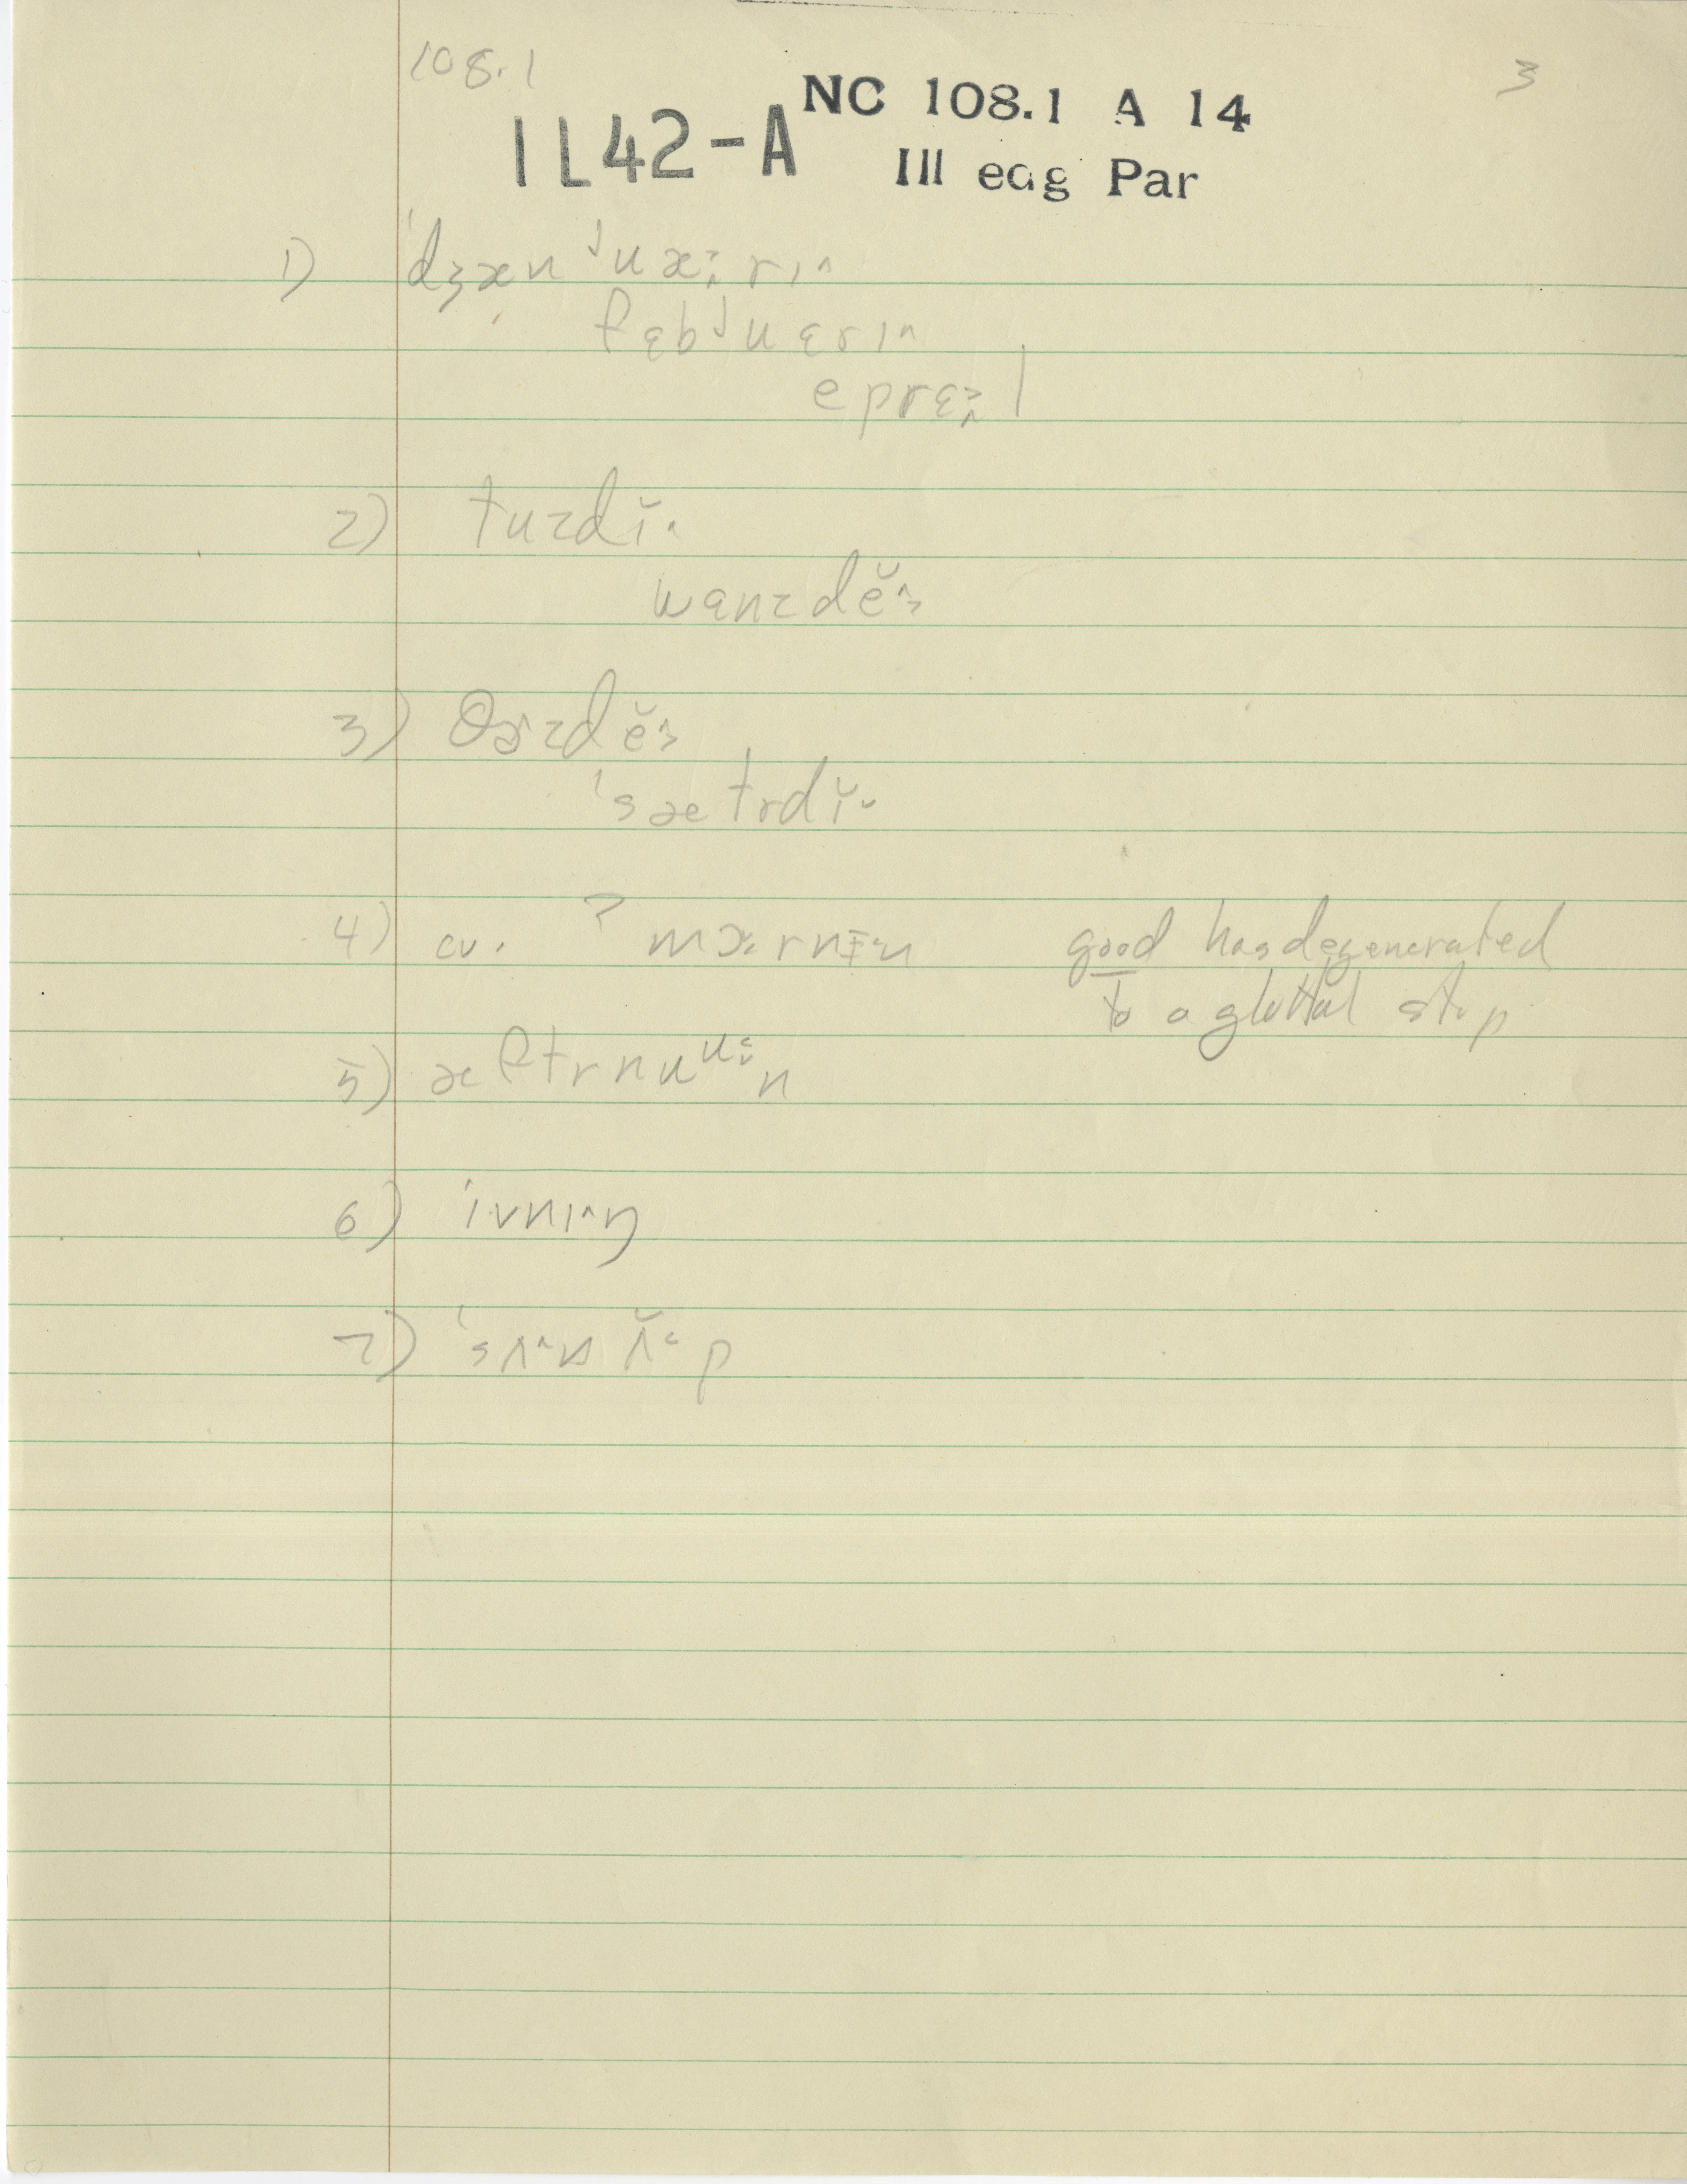 108.1
3
NC 108.1 A 14
1L42-A
Ill edg Par
1) ˈdʒænʲuæ:rɪ^
fɛbʲuɛrɪ^
eprɛ:l
2) tuzdĭ^
wɛnzdĕ^
3) θɝzdĕ
ˈsætɚdĭ
4) cv. ʔ mɔrnɪn good has degenerated
to a glottal stop
5) æftrnuᵘ:n
6) ˈivnɪ^ŋ
7) ˈsʌ^nʌ̆p